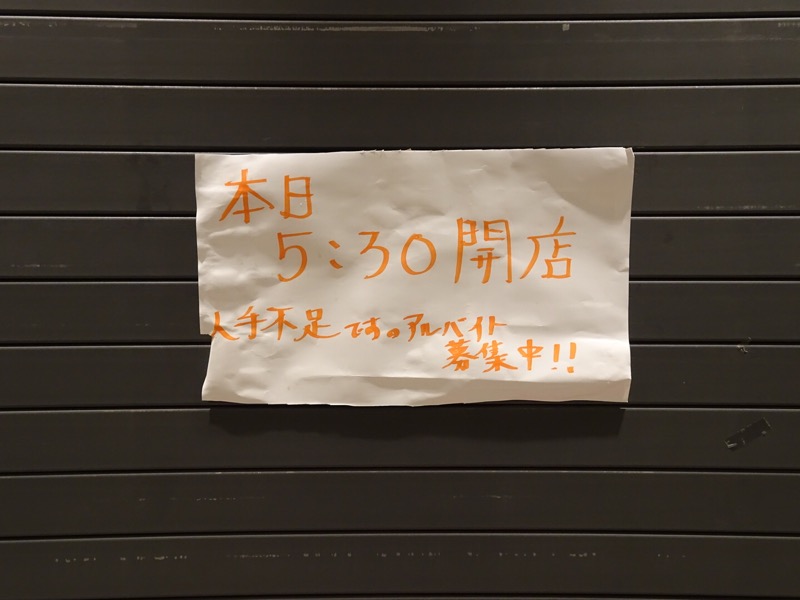 本日
5:30開店
人手不足ですのアルバイト
募集中!!